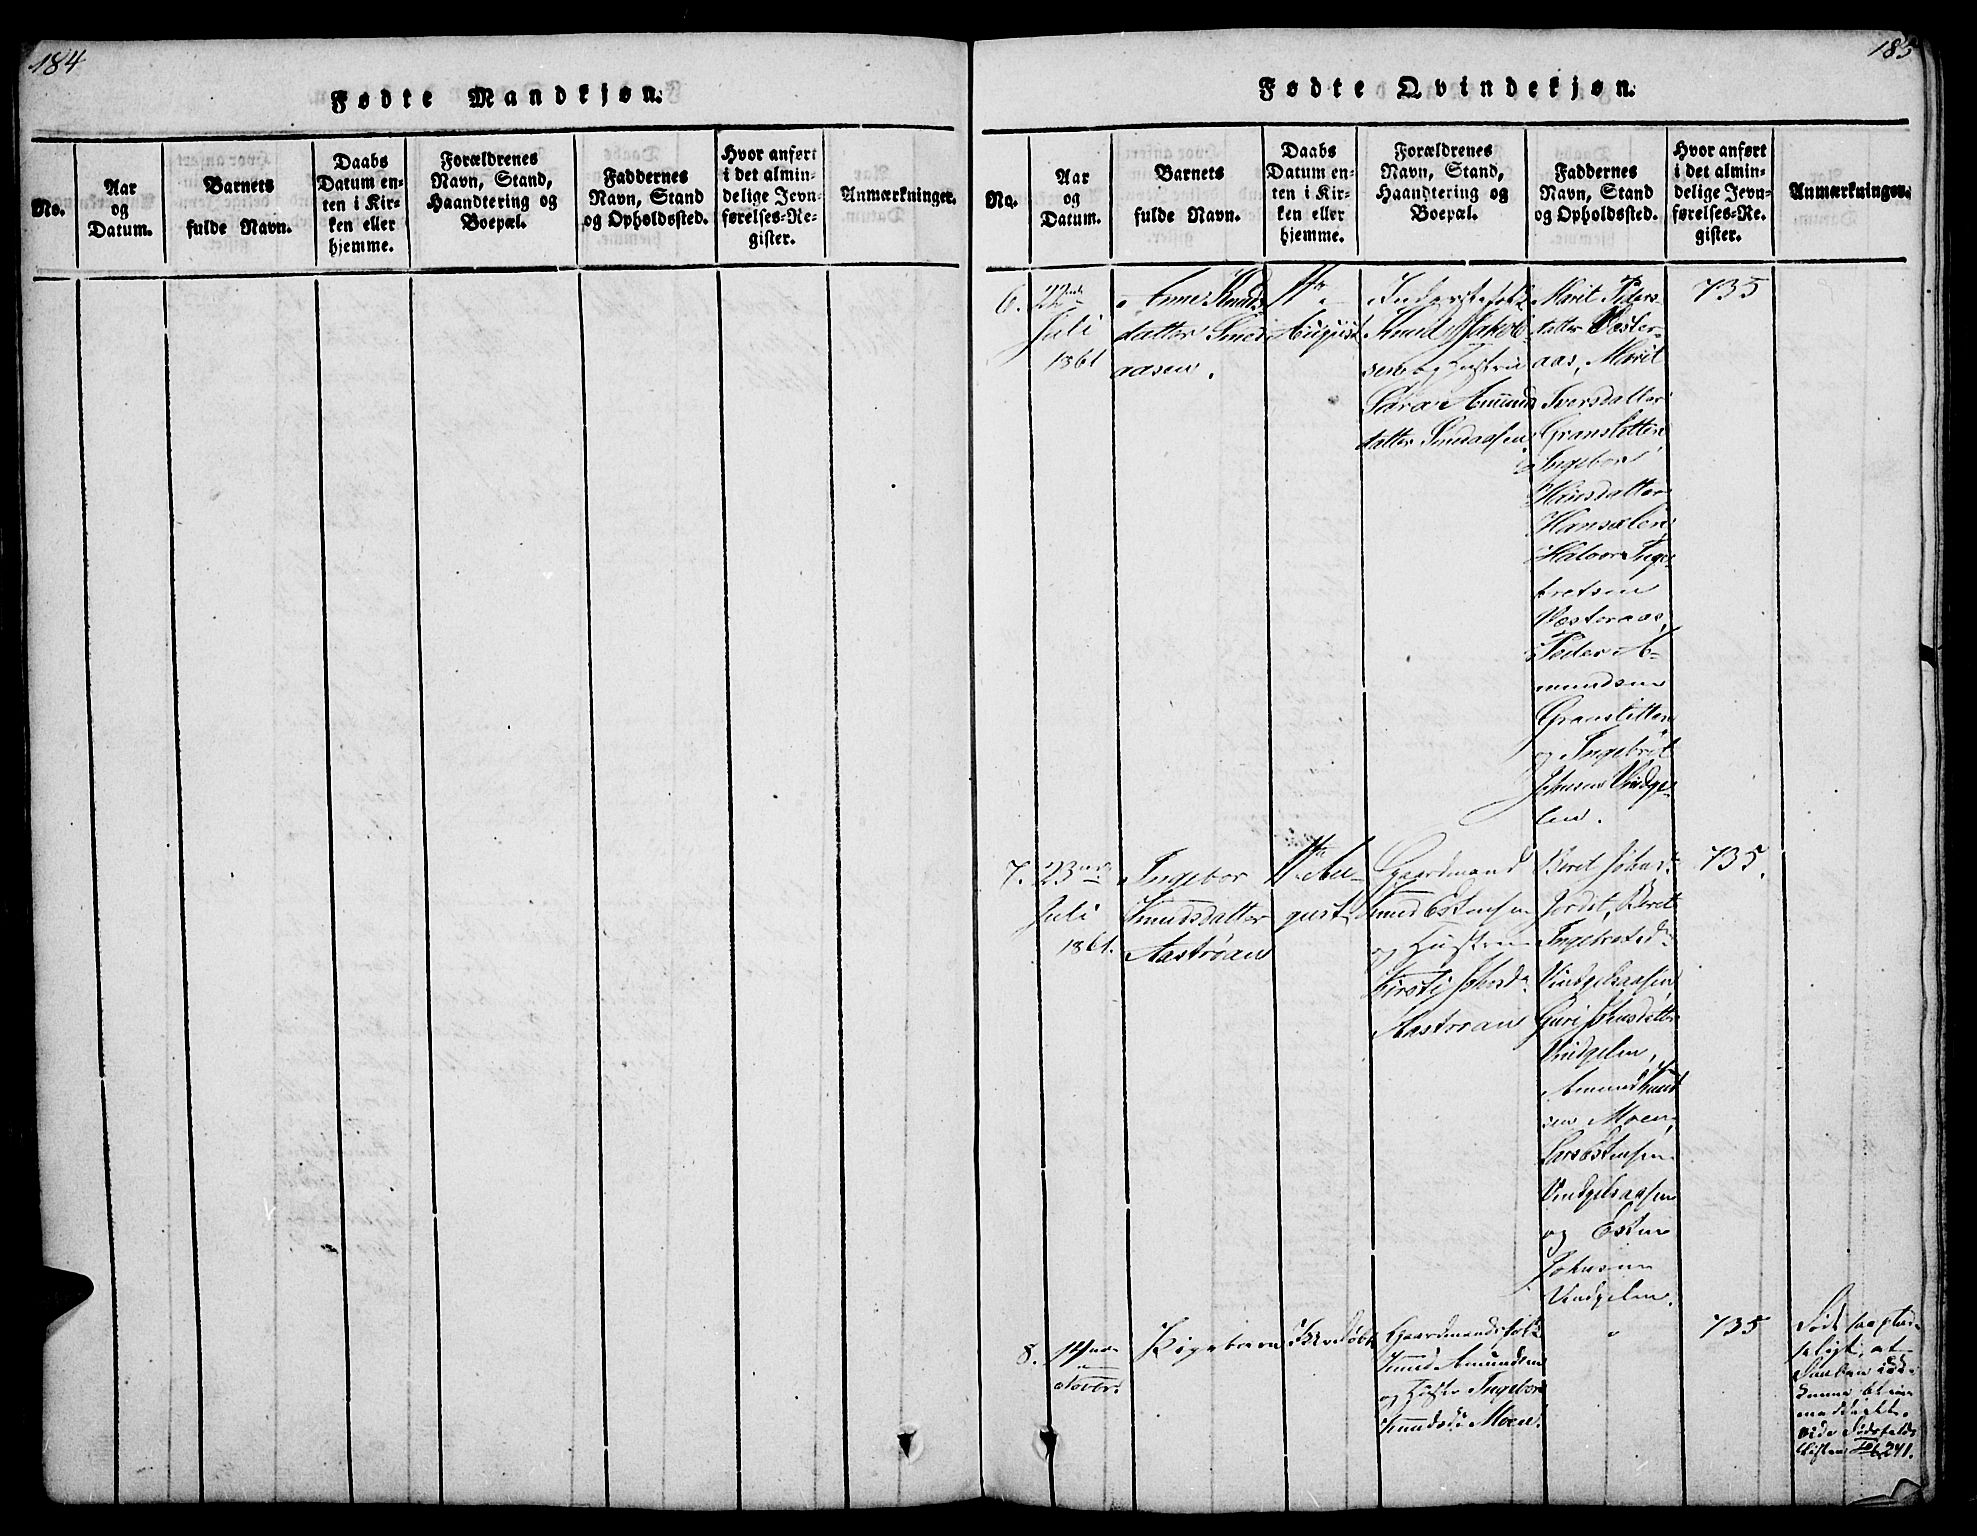 184
Fødte Mandkjøn.
No.
Aar
og
Datum.
Barnets
fulde Navn.
Daabs
Datum en-
ten i Kir-
ken eller
hjemme.
Forældrenes
Navn, Stand,
Haandtering og
Boepæl.
Faddernes
Navn, Stand
og Opholdssted.
Hvor anført
i det almin-
delige Jevn-
førelses-Re-
gister.
Anmærkninger.
185
Fødte Qvindekjøn.
No.
Aar
og
Datum.
Barnets
fulde Navn.
Daabs
Datum en-
ten i Kir-
ken eller
hjemme.
Forældrenes
Navn, Stand,
Haandtering og
Boepæl.
Faddernes
Navn, Stand
og Opholdssted.
Hvor anført
i det almin-
delige Jevn-
førelses-Re-
gister.
Anmærkninger.
6.
22
Juli
1861
Anne Knuds
datter Smed
aasen.
11te
August
Inderstefolk
Knud Jakob
sen og Hustru
Sara Amund
datter Smedaasen
Marit Peders
datter Vester-
aas, Marit
Iversdatter
Ingebor
Hansdatter
Halvor Inge-
bretsen
Vesteraas,
Peder A-
mundsen
og Ingebret
Johnsen Vindge-
len.
735
7.
23
Juli
1861.
Ingebor
Knudsdatter
Aastrøan
11te Au-
gust
Gaardmand
Knud Estensen
og Hustru
Kirsti
Aastrøan
Beret
Jordet, Beret
Vindgelaasen
Guri Johnsdatter
Vindgelen,
Amund Knud
sen Moen,
Lars Estensen
Vindgelaasen
og Esten
Johnsen
Vindgelen.
735.
8.
14
Novbr.
Pigebarn
Ikke døbt
Gaardmandsfolk
Knud Amundsen
og Hustr Ingebor
Knudsd. Moen.
"
735
241.